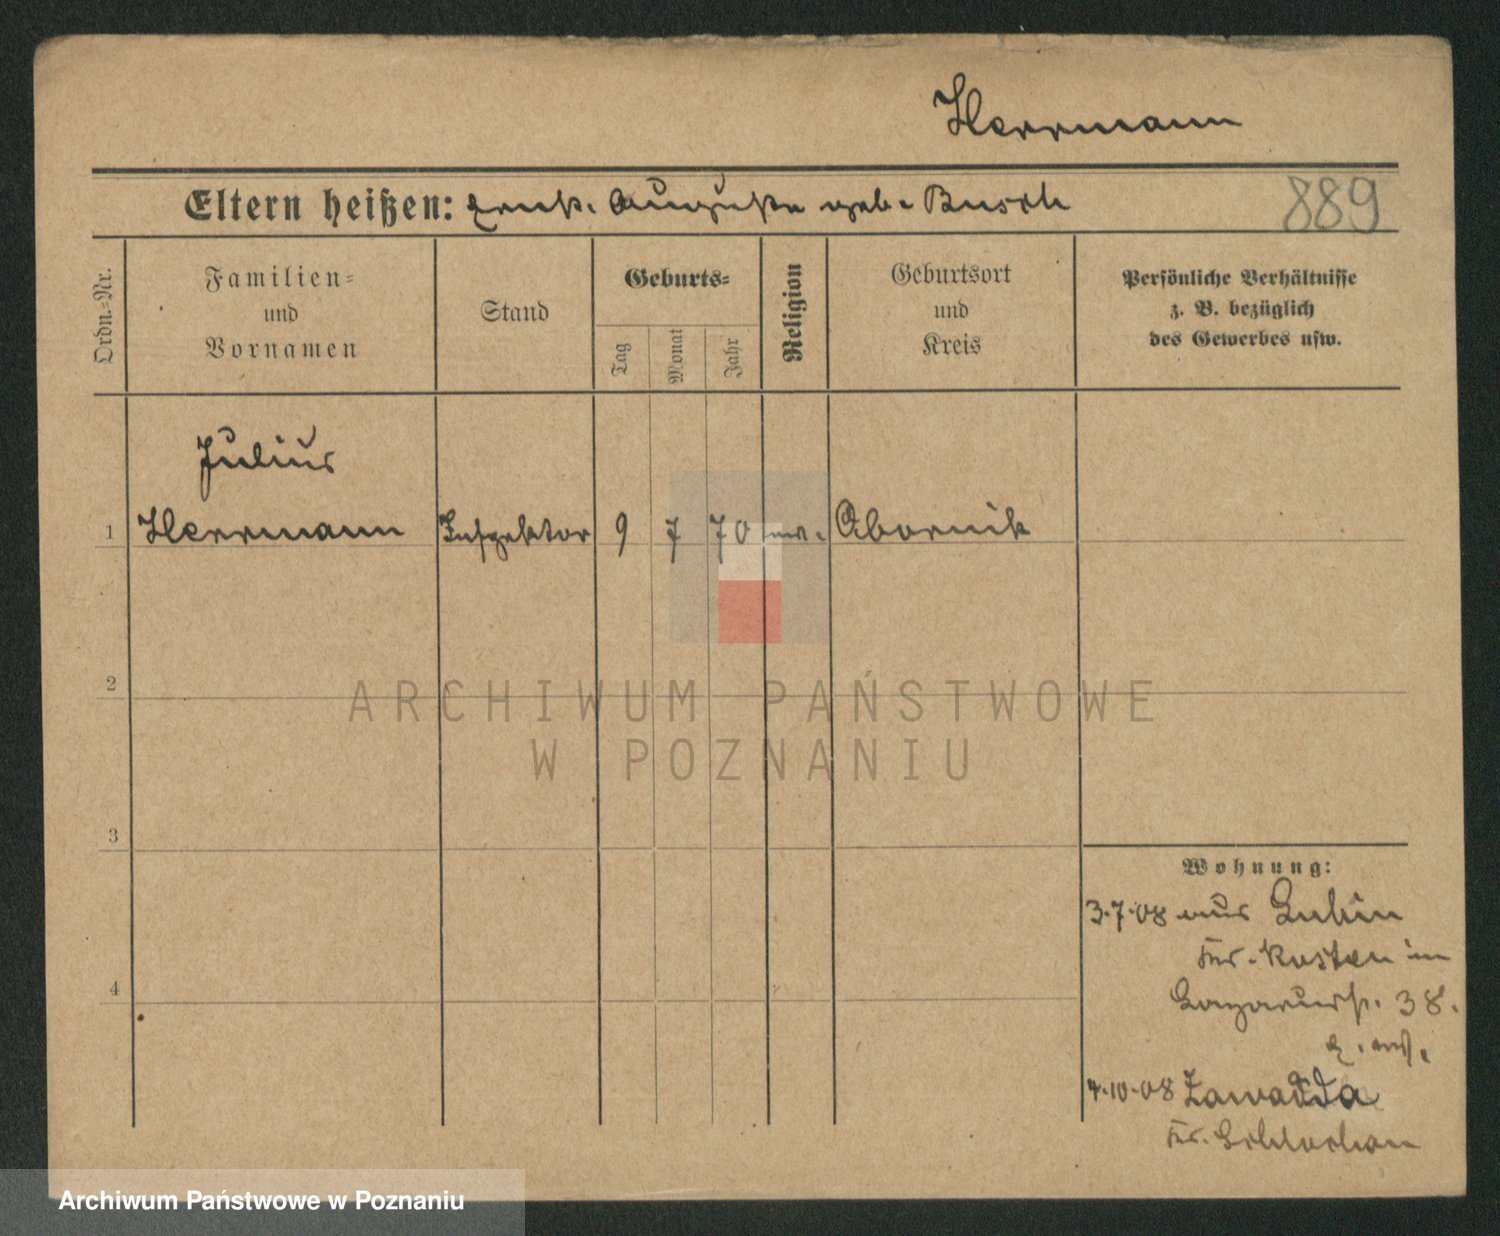 Herrmann
Eltern heißen: Ernst. Auguste geb. Busch
889
Ordn.-Nr.
Familien-
und
Vornamen
Stand
Geburts-
Tag
Monat
Jahr
Religion
Geburtsort
und
Kreis
Persönliche Verhältnisse
z. B. bezüglich
des Gewerbes usw.
Julius
1 Herrmann Inspektor 9 7 70 ev. Obornik
2
ARCHIWUM PAŃSTWOWE
W POZNANIU
3
Wohnung:
3.7.08 aus Lubin
Kr. Kosten in
4
38.
4.10.08 Zawadda
Kr. Schlochau
Archiwum Państwowe w Poznaniu